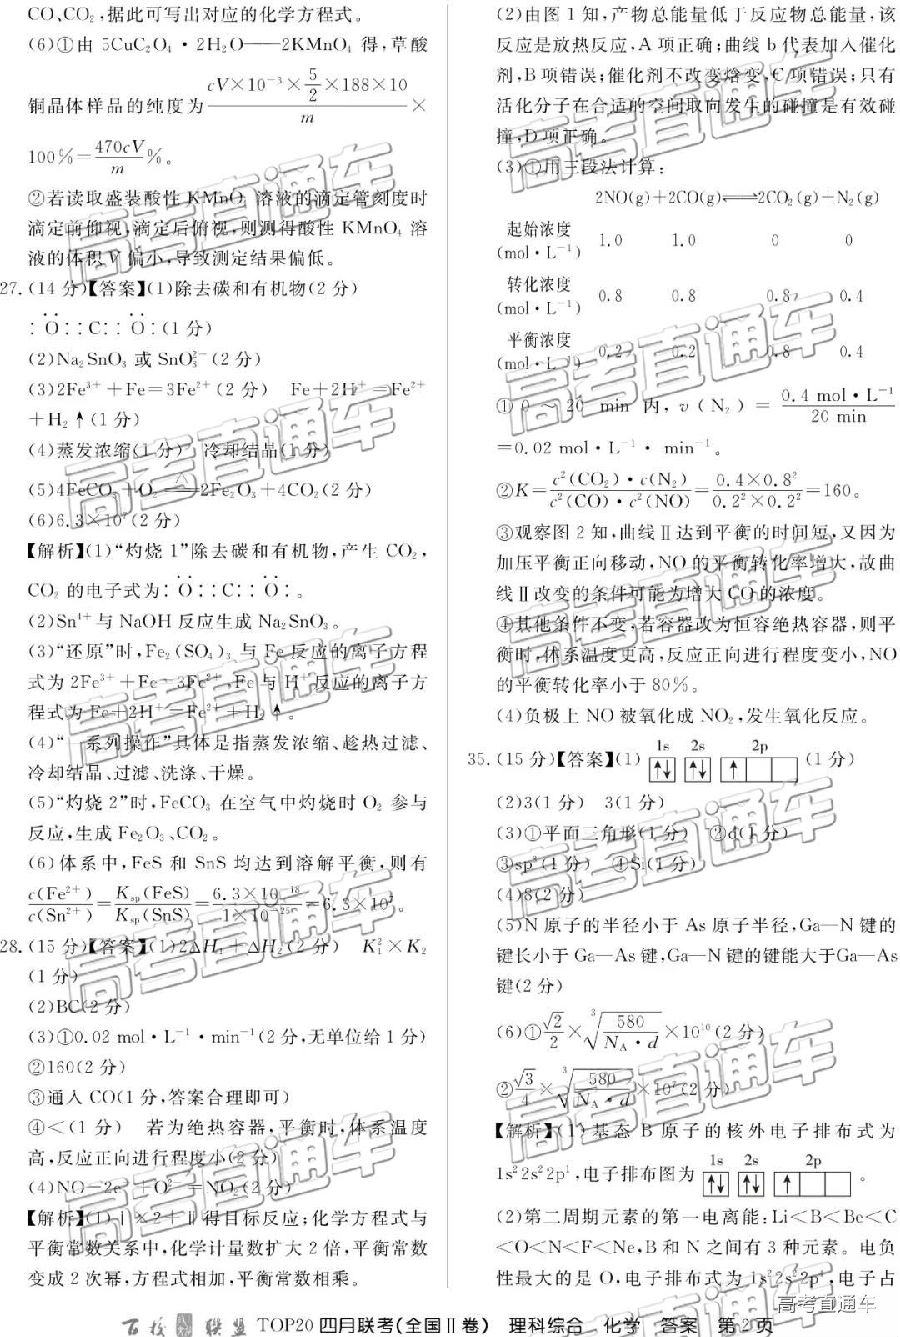 CO、CO₂，据此可写出对应的化学方程式。
(6)①由 5CuC₂O₄・2H₂O——2KMnO₄ 得，草酸
铜晶体样品的纯度为 cV×10⁻³×5/2×188×10 / m ×
100%=470cV/m%。
②若读取盛装酸性 KMnO₄ 溶液的滴定管刻度时
滴定前仰视，滴定后俯视，则测得酸性 KMnO₄ 溶
液的体积 V 偏小，导致测定结果偏低。
27.(14 分)【答案】(1)除去碳和有机物(2 分)
:Ö::C::Ö:(1 分)
(2)Na₂SnO₃ 或 SnO₃²⁻(2 分)
(3)2Fe³⁺+Fe=3Fe²⁺(2 分)　Fe+2H⁺=Fe²⁺
+H₂↑(1 分)
(4)蒸发浓缩(1 分)　冷却结晶(1 分)
(5)4FeCO₃+O₂ △ 2Fe₂O₃+4CO₂(2 分)
(6)6.3×10⁷(2 分)
【解析】(1)“灼烧 1”除去碳和有机物，产生 CO₂，
CO₂ 的电子式为:Ö::C::Ö:。
(2)Sn⁴⁺与 NaOH 反应生成 Na₂SnO₃。
(3)“还原”时，Fe₂(SO₄)₃ 与 Fe 反应的离子方程
式为 2Fe³⁺+Fe=3Fe²⁺，Fe 与 H⁺反应的离子方
程式为 Fe+2H⁺=Fe²⁺+H₂↑。
(4)“一系列操作”具体是指蒸发浓缩、趁热过滤、
冷却结晶、过滤、洗涤、干燥。
(5)“灼烧 2”时，FeCO₃ 在空气中灼烧时 O₂ 参与
反应，生成 Fe₂O₃、CO₂。
(6)体系中，FeS 和 SnS 均达到溶解平衡，则有
c(Fe²⁺)/c(Sn²⁺)=Ksp(FeS)/Ksp(SnS)=6.3×10⁻¹⁸/1×10⁻²⁵=6.3×10⁷。
28.(15 分)【答案】(1)2ΔH₁+ΔH₂(2 分)　K₁²×K₂
(1 分)
(2)BC(2 分)
(3)①0.02 mol・L⁻¹・min⁻¹(2 分，无单位给 1 分)
②160(2 分)
③通入 CO(1 分，答案合理即可)
④<(1 分)　若为绝热容器，平衡时，体系温度
高，反应正向进行程度小(2 分)
(4)NO-2e⁻+O²⁻=NO₂(2 分)
【解析】(1)Ⅰ×2+Ⅱ得目标反应；化学方程式与
平衡常数关系中，化学计量数扩大 2 倍，平衡常数
变成 2 次幂，方程式相加，平衡常数相乘。
(2)由图 1 知，产物总能量低于反应物总能量，该
反应是放热反应，A 项正确；曲线 b 代表加入催化
剂，B 项错误；催化剂不改变焓变，C 项错误；只有
活化分子在合适的空间取向发生的碰撞是有效碰
撞，D 项正确。
(3)①用三段法计算：
2NO(g)+2CO(g)⇌2CO₂(g)+N₂(g)
起始浓度
(mol・L⁻¹)　1.0　1.0　0　0
转化浓度
(mol・L⁻¹)　0.8　0.8　0.8　0.4
平衡浓度
(mol・L⁻¹)　0.2　0.2　0.8　0.4
①0～20 min 内，v(N₂)=0.4 mol・L⁻¹/20 min
=0.02 mol・L⁻¹・min⁻¹。
②K=c²(CO₂)・c(N₂)/c²(CO)・c²(NO)=0.4×0.8²/0.2²×0.2²=160。
③观察图 2 知，曲线Ⅱ达到平衡的时间短，又因为
加压平衡正向移动，NO 的平衡转化率增大，故曲
线Ⅱ改变的条件可能为增大 CO 的浓度。
④其他条件不变，若容器改为恒容绝热容器，则平
衡时，体系温度更高，反应正向进行程度变小，NO
的平衡转化率小于 80%。
(4)负极上 NO 被氧化成 NO₂，发生氧化反应。
35.(15 分)【答案】(1) 1s ↑↓ 2s ↑↓ 2p ↑ (1 分)
(2)3(1 分)　3(1 分)
(3)①平面三角形(1 分)　②d(1 分)
③sp³(1 分)　④Si(1 分)
(4)8(2 分)
(5)N 原子的半径小于 As 原子半径，Ga—N 键的
键长小于 Ga—As 键，Ga—N 键的键能大于Ga—As
键(2 分)
(6)①√2/2×∛(580/Nᴀ・d)×10¹⁰(2 分)
②√3/4×∛(580/Nᴀ・d)×10⁷(2 分)
【解析】(1)基态 B 原子的核外电子排布式为
1s²2s²2p¹，电子排布图为 1s ↑↓ 2s ↑↓ 2p ↑ 。
(2)第二周期元素的第一电离能：Li<B<Be<C
<O<N<F<Ne，B 和 N 之间有 3 种元素。电负
性最大的是 O，电子排布式为 1s²2s²2p⁴，电子占
百校联盟 TOP20 四月联考(全国Ⅱ卷)　理科综合　化学　答案　第 2 页
高考直通车